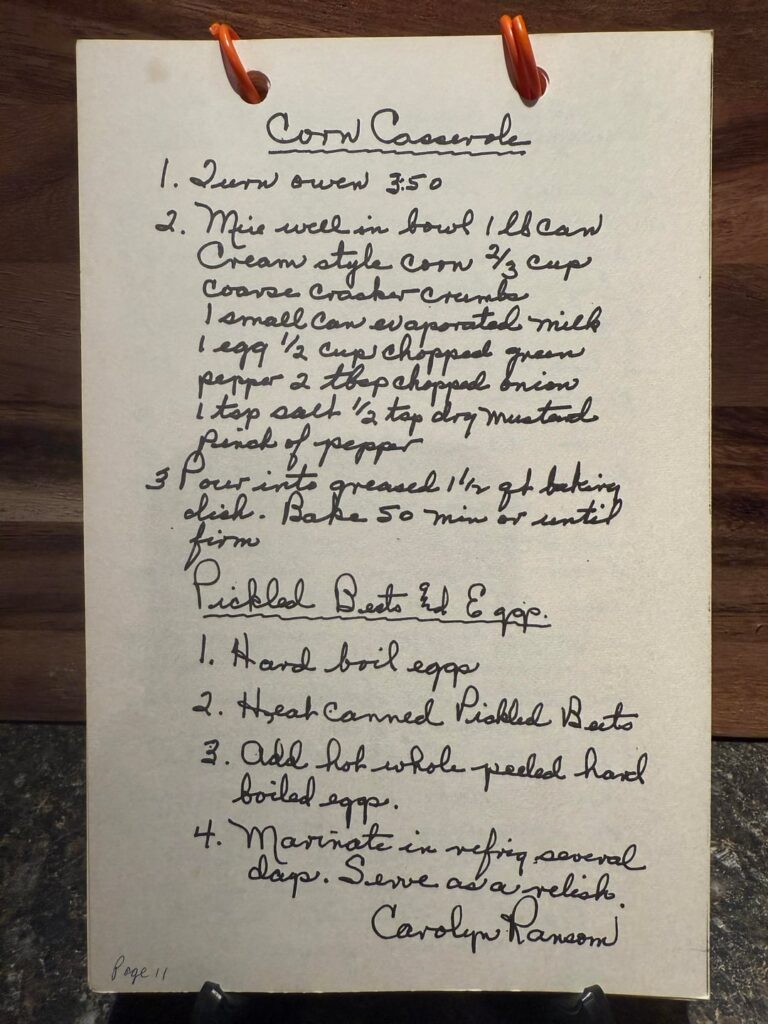 Corn Casserole
1. Turn owen 3:50
2. Mix well in bowl 1 lb can
Cream style corn 2/3 cup
coarse cracker crumbs
1 small can evaporated milk
1 egg 1/2 cup chopped green
pepper 2 tbsp chopped onion
1 tsp salt 1/2 tsp dry mustard
pinch of pepper
3 Pour into greased 1 1/2 qt baking
dish. Bake 50 min or until
firm
Pickled Beets and Eggs.
1. Hard boil eggs
2. Heat canned Pickled Beets
3. Add hot whole peeled hard
boiled eggs.
4. Marinate in refrig several
days. Serve as a relish.
Carolyn Ransom
Page 11